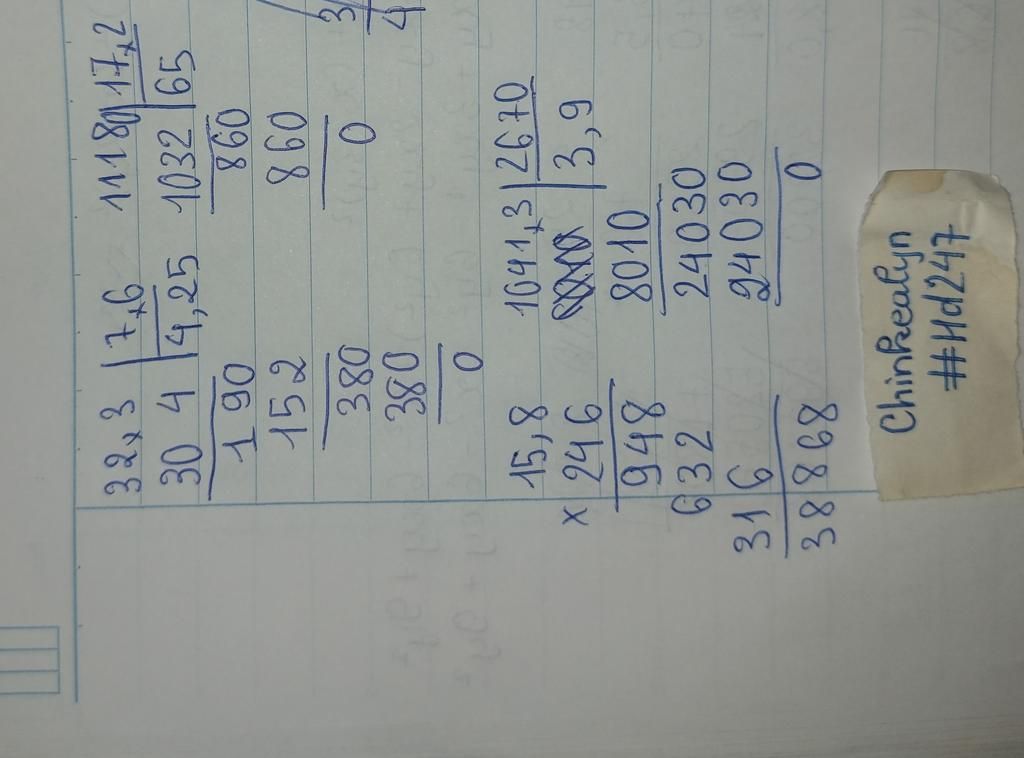 32,3 | 7,6
30 4 | 4,25
190
152
380
380
0
1118 0 | 17,2
1032 | 65
860
860
0
3
4
15,8
x 246
948
632
316
38868
1041,3 | 2670
8010 | 3,9
24030
24030
0
Chinkealyn
##Hd247